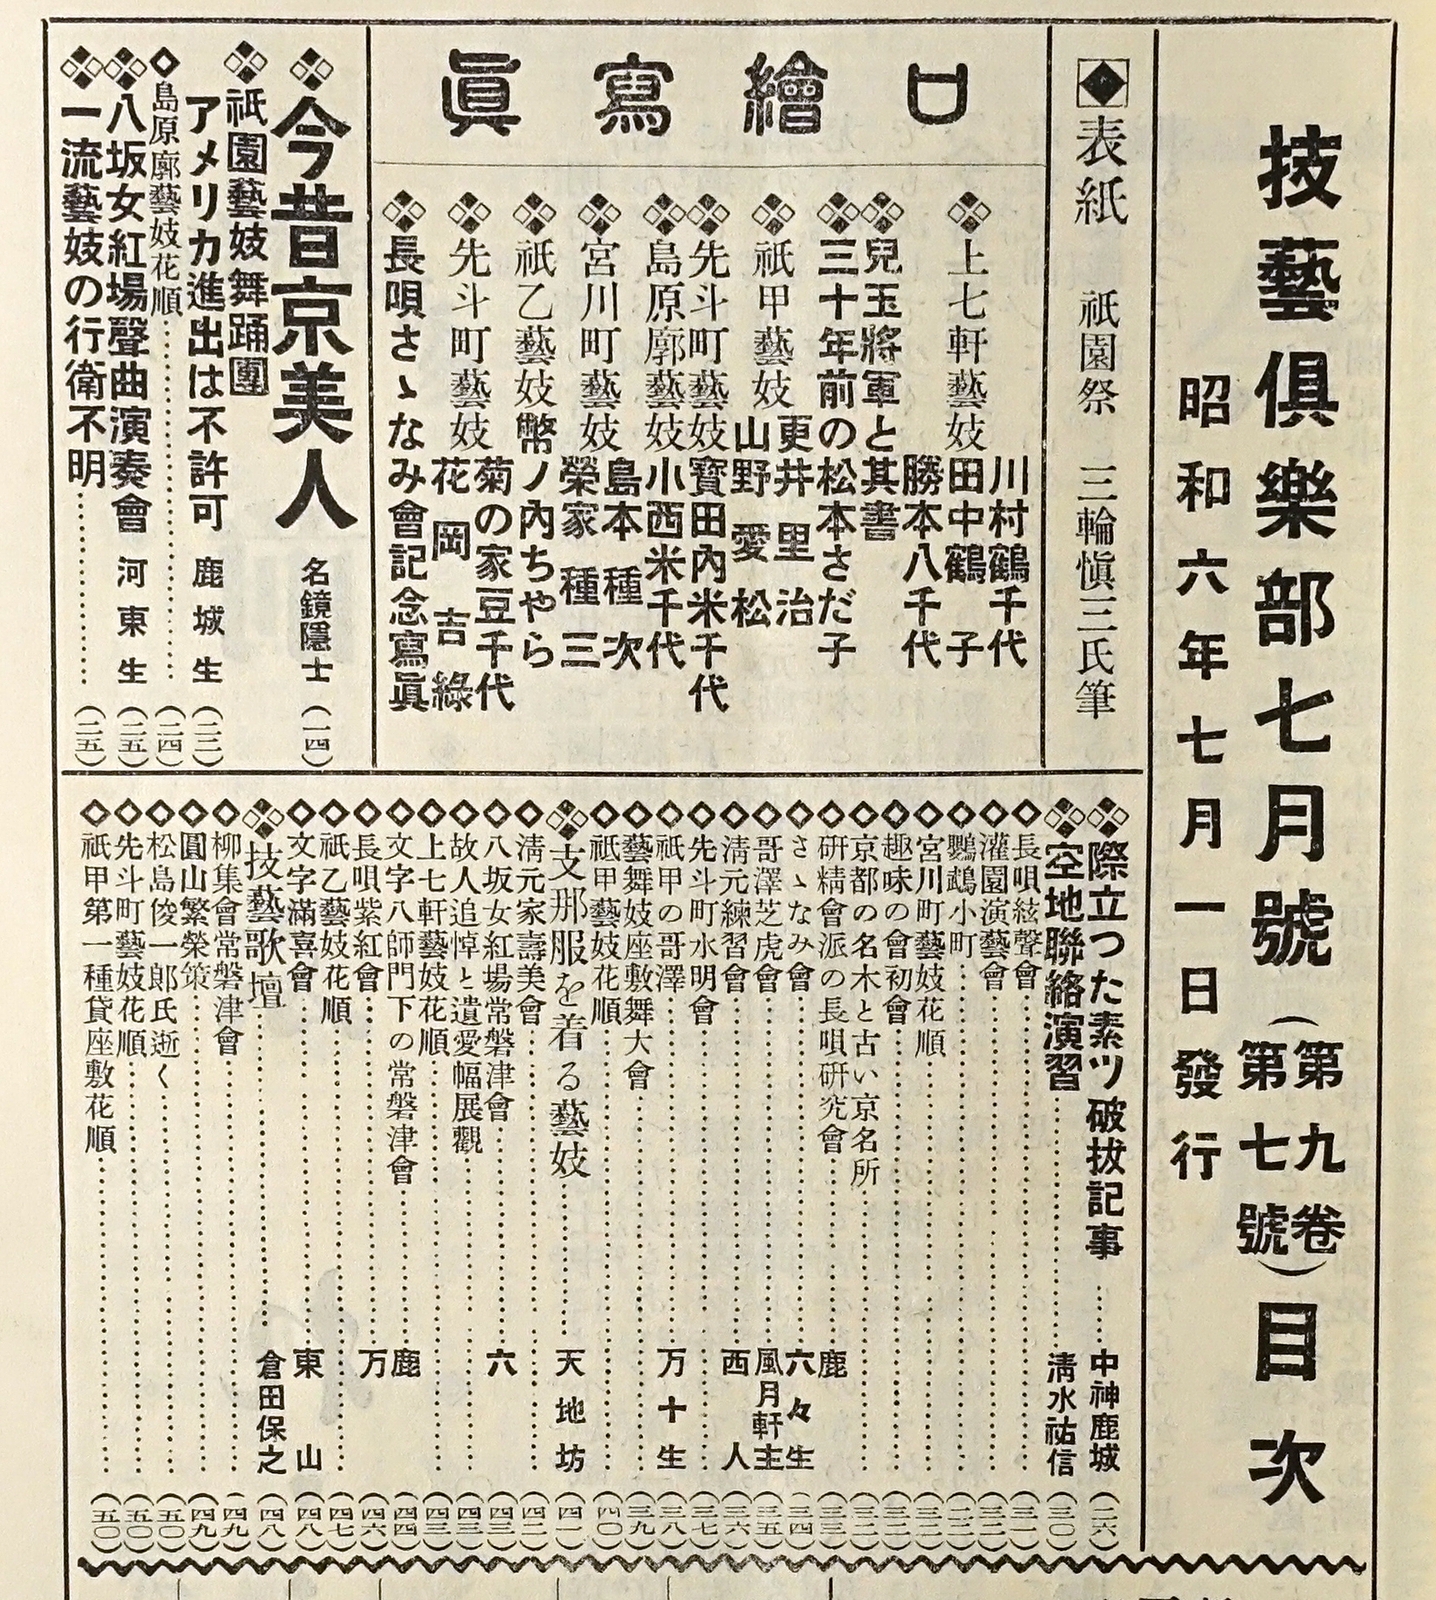 技藝俱樂部七月號(第九卷第七號)目次
昭和六年七月一日發行
表紙 祇園祭 三輪愼三氏筆
口繪寫眞
上七軒藝妓 川村鶴千代 田中鶴子 勝本八千代
兒玉將軍と其書
三十年前の松本さだ子
祇甲藝妓 更井里治 山野愛松
先斗町藝妓 寶田內米千代
島原廓藝妓 小西米千代
宮川町藝妓 島本種次 榮家種三
祇乙藝妓 幣ノ內ちやら
先斗町藝妓 菊の家豆千代 花岡吉綠
長唄さゝなみ會記念寫眞
今昔京美人 名鏡隱士 (一四)
祇園藝妓舞踊團
アメリカ進出は不許可 鹿城生 (二三)
島原廓藝妓花順 (二四)
八坂女紅場聲曲演奏會 河東生 (二五)
一流藝妓の行衛不明 (二五)
際立つた素ツ破拔記事 中神鹿城 (二六)
空地聯絡演習 淸水祐信 (三〇)
長唄絃聲會 (三一)
灌園演藝會 (三二)
鸚鵡小町
宮川町藝妓花順 (三二)
趣味の會初會 (三二)
京都の名木と古い京名所 (三二)
硏精會派の長唄硏究會 鹿 (三三)
さゝなみ會 六々生 (三四)
哥澤芝虎會 風月軒主 (三五)
淸元練習會 西人 (三六)
先斗町水明會 (三七)
祇甲の哥澤 万十生 (三八)
藝舞妓座敷舞大會 (三九)
祇甲藝妓花順 (四〇)
支那服を着る藝妓 天地坊 (四一)
淸元家壽美會 (四二)
八坂女紅場常磐津會 六 (四三)
故人追悼と遺愛幅展觀 (四三)
上七軒藝妓花順 (四三)
文字八師門下の常磐津會 鹿 (四四)
長唄紫紅會 万 (四六)
祇乙藝妓花順 (四七)
文字滿喜會 東山 (四八)
技藝歌壇 倉田保之 (四八)
柳集會常磐津會 (四九)
圓山繁榮策 (四九)
松島俊一郎氏逝く (五〇)
先斗町藝妓花順 (五〇)
祇甲第一種貸座敷花順 (五〇)